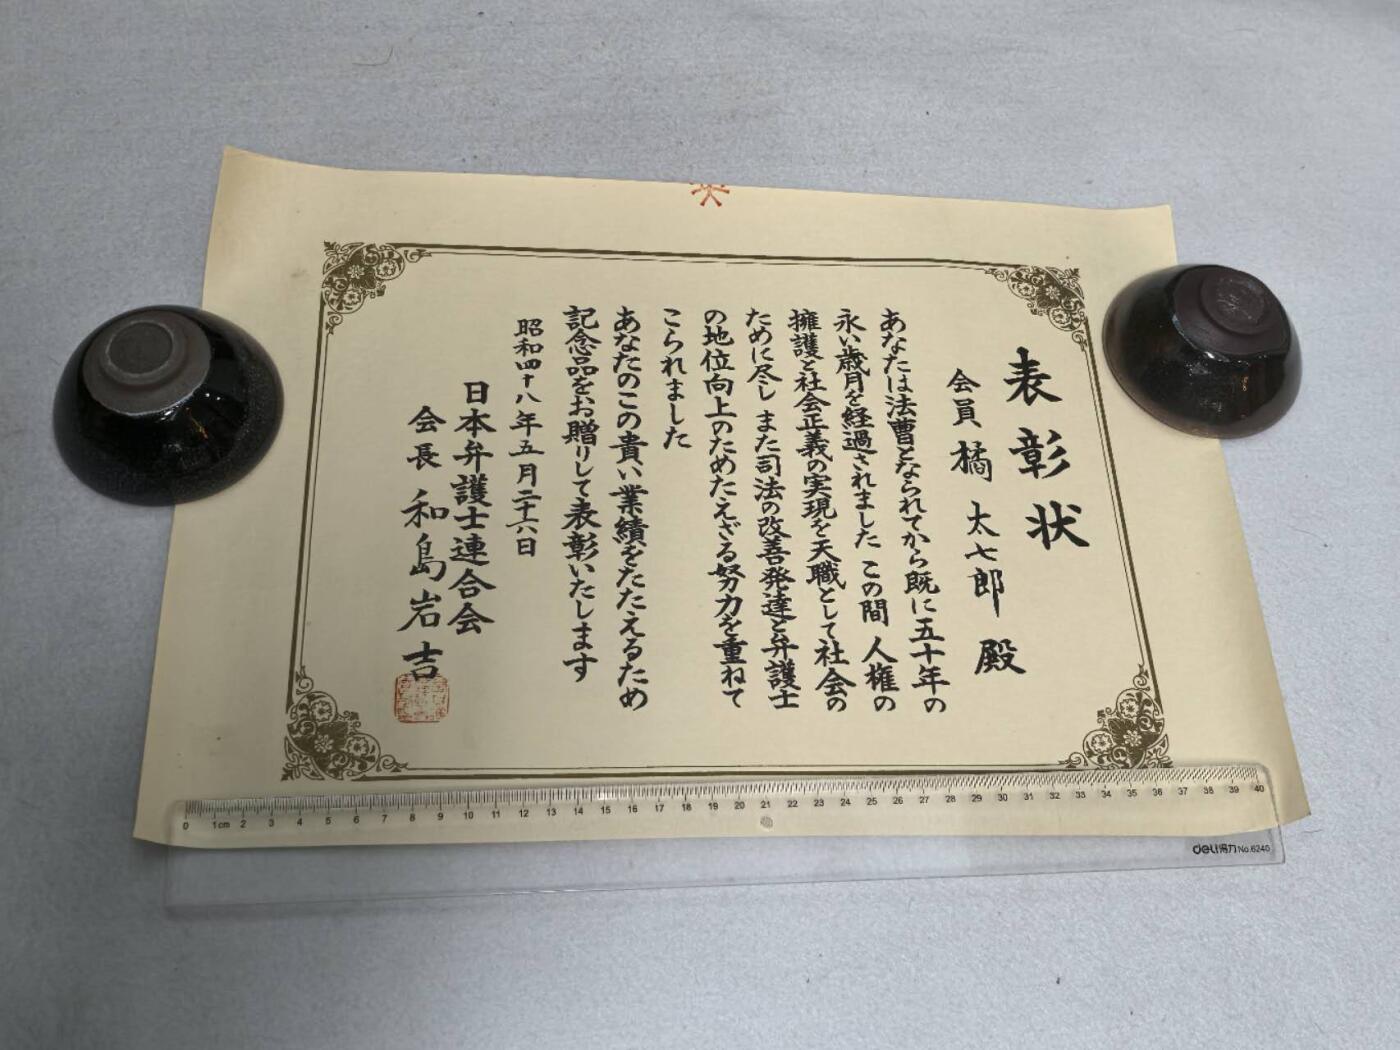 表彰状
会員 橘 太七郎 殿
あなたは法曹となられてから既に五十年の
永い歳月を経過されました この間 人権の
擁護と社会正義の実現を天職として社会の
ために尽し また司法の改善発達と弁護士
の地位向上のためたえざる努力を重ねて
こられました
あなたのこの貴い業績をたたえるため
記念品をお贈りして表彰いたします
昭和四十八年五月二十六日
日本弁護士連合会
会長 和島岩吉
0 1cm 2 3 4 5 6 7 8 9 10 11 12 13 14 15 16 17 18 19 20 21 22 23 24 25 26 27 28 29 30 31 32 33 34 35 36 37 38 39 40
deli得力 No.6240